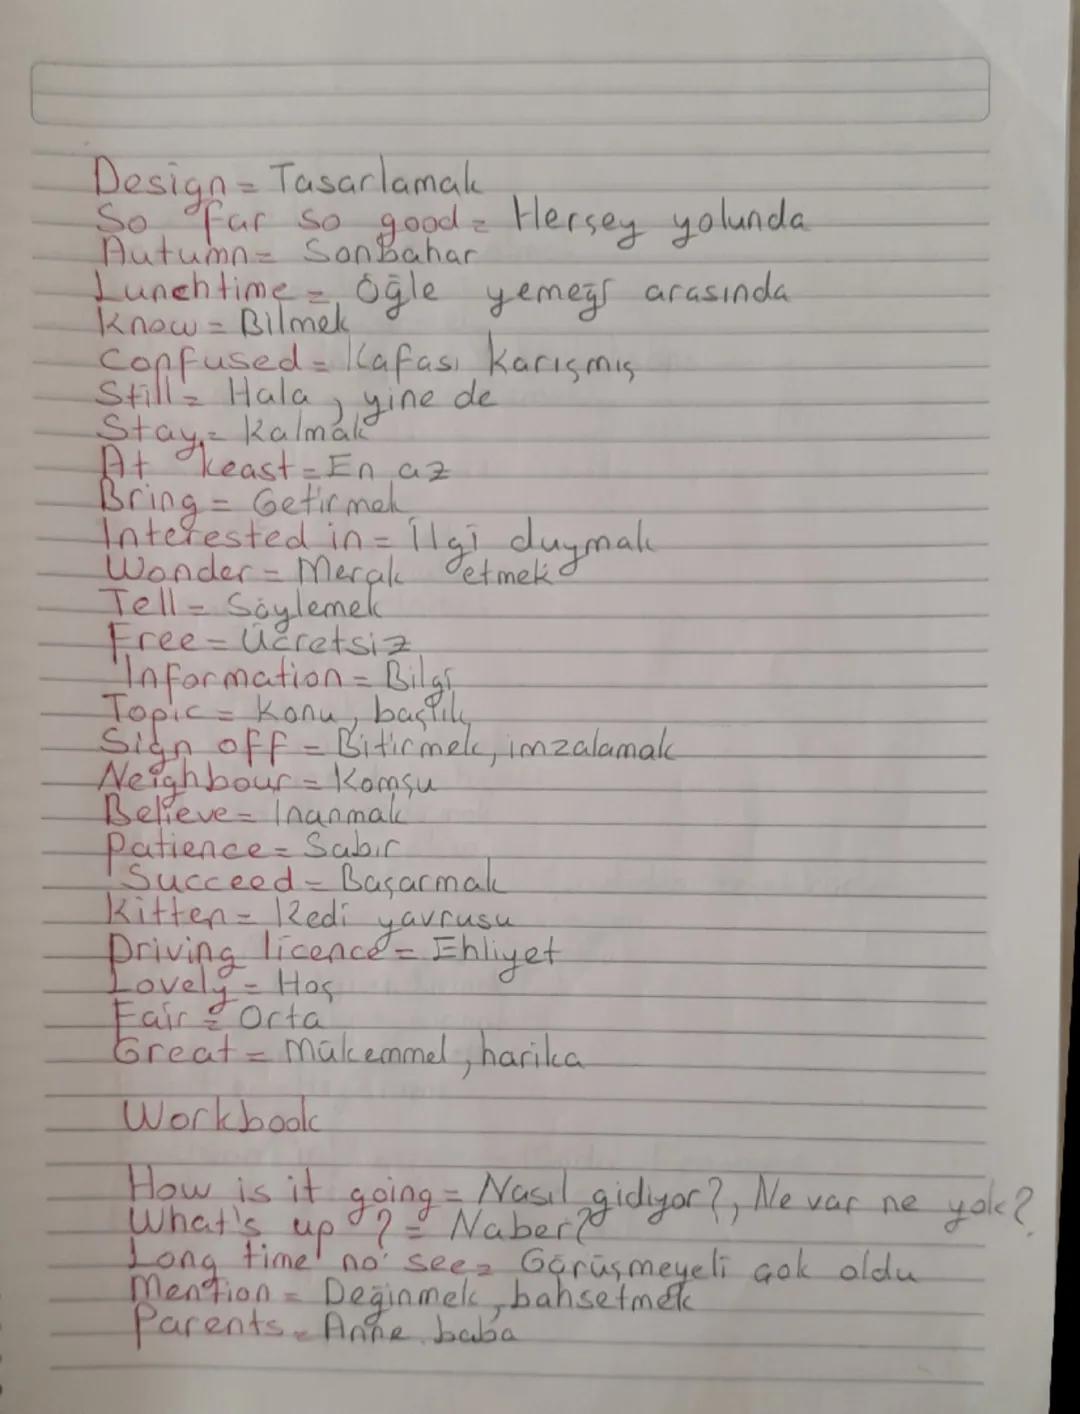 Design = Tasarlamak
So far so good = Herşey yolunda
Autumn = Sonbahar
Lunchtime = Öğle yemeği arasında
Know = Bilmek
Confused = Kafası karışmış
Still = Hala, yine de
Stay = Kalmak
At keast = En az
Bring = Getirmek
Interested in = İlgi duymak
Wonder = Merak etmek
Tell = Söylemek
Free = Ücretsiz
Information = Bilgi
Topic = Konu, başlık
Sign off = Bitirmek, imzalamak
Neighbour = Komşu
Believe = Inanmak
Patience = Sabır
Succeed = Başarmak
Kitten = Kedi yavrusu
Driving licence = Ehliyet
Lovely = Hoş
Fair = Orta
Great = Mükemmel, harika
Workbook
How is it going = Nasıl gidiyor?, Ne var ne yok?
What's up ? = Naber?
Long time no see = Görüşmeyeli çok oldu
Mention = Değinmek, bahsetmek
Parents = Anne baba